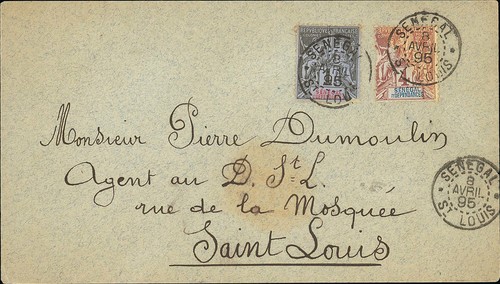 SENEGAL
8
AVRIL
95
ST LOUIS
SENEGAL
8
AVRIL
95
ST LOUIS
SENEGAL
ET DEPENDANCES
Monsieur Pierre Dumoulin
Agent au D. St. L.
rue de la Mosquée
Saint Louis
SENEGAL
8
AVRIL
95
ST LOUIS